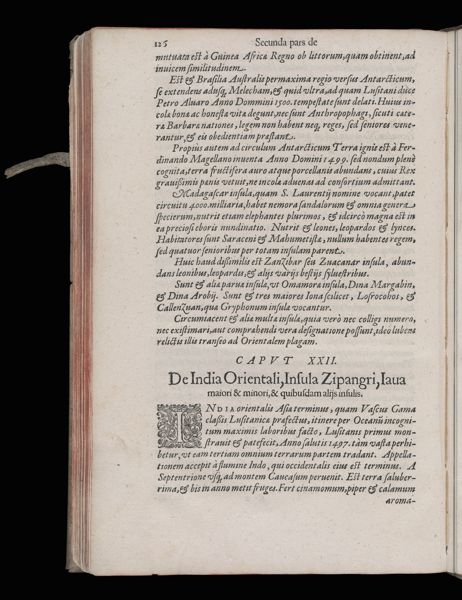 126 Secunda pars de
mutuata est à Guinea Africa Regno ob littorum, quam obtinent, ad
inuicem similitudinem.
Est & Brasilia Australis permaxima regio versus Antarcticum,
se extendens adusq, Melecham, & quid vltra, ad quam Lusitani duce
Petro Aluaro Anno Dommini 1500. tempestate sunt delati. Huius in-
cola bona ac honesta vita degunt, nec sunt Anthropophagi, sicuti cæte-
ra Barbara nationes, legem non habent neq, reges, sed seniores vene-
rantur, & eis obedientiam præstant.
Propius autem ad circulum Antarcticum Terra ignis est à Fer-
dinando Magellano inuenta Anno Domini 1499. sed nondum plenè
cognita, terra fructifera auro atque porcellanis abundans, cuius Rex
grauissimis pænis vetuit, ne incola aduenas ad consortium admittant.
Madagascar insula, quam S. Laurentij nomine vocant, patet
circuitu 4000. milliaria, habet nemora sandalorum & omnia genera
specierum, nutrit etiam elephantes plurimos, & idcircò magna est in
ea preciosi eboris nundinatio. Nutrit & leones, leopardos & lynces.
Habitatores sunt Saraceni & Mahumetistæ, nullum habentes regem,
sed quatuor seniores per totam insulam parent.
Huic haud disimilis est Zanzibar seu Zuacanar insula, abun-
dans leonibus, leopardis, & alijs varijs bestijs syluestribus.
Sunt & alia parua insula, vt Omamora insula, Dina Margabin,
& Dina Arobij. Sunt & tres maiores Ioua scilicet, Losrocohos, &
Callenzuan, qua Gryphonum insula vocantur.
Circumiacent & alia multa insula, quia verò nec colligi numero,
nec existimari, aut comprehendi vera designatione possunt, ideo lubens
relictis illis transeo ad Orientalem plagam.
CAPVT XXII.
De India Orientali, Insula Zipangri, Iaua
maiori & minori, & quibusdam alijs insulis.
INDIA orientalis Asia terminus, quam Vascus Gama
classis Lusitanica præfectus, itinere per Oceanū incogni-
tum maximis laboribus facto, Lusitanis primus mon-
strauit & patefecit, Anno salutis 1497. tàm vasta perhi-
betur, vt eam tertiam omnium terrarum partem tradant. Appella-
tionem accepit à flumine Indo, qui occidentalis eius est terminus. A
Septentrione vsq, ad montem Caucasum peruenit. Est terra saluber-
rima, & bis in anno metit fruges. Fert cinamomum, piper & calamum
aroma-